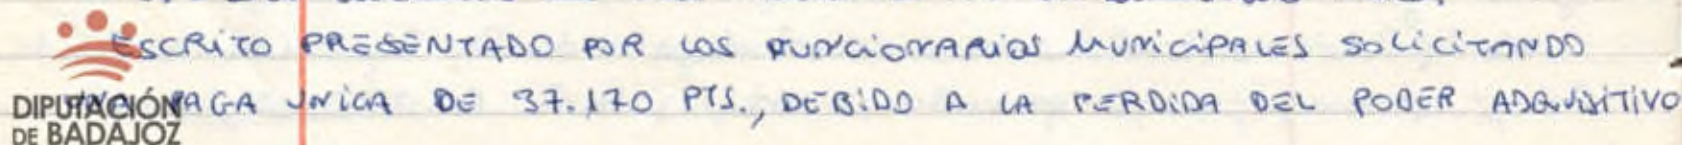 ESCRITO PRESENTADO POR LOS FUNCIONARIOS MUNICIPALES SOLICITANDO
PAGA UNICA DE 37.170 PTS., DEBIDO A LA PERDIDA DEL PODER ADQUISITIVO
DIPUTACIÓN
DE BADAJOZ